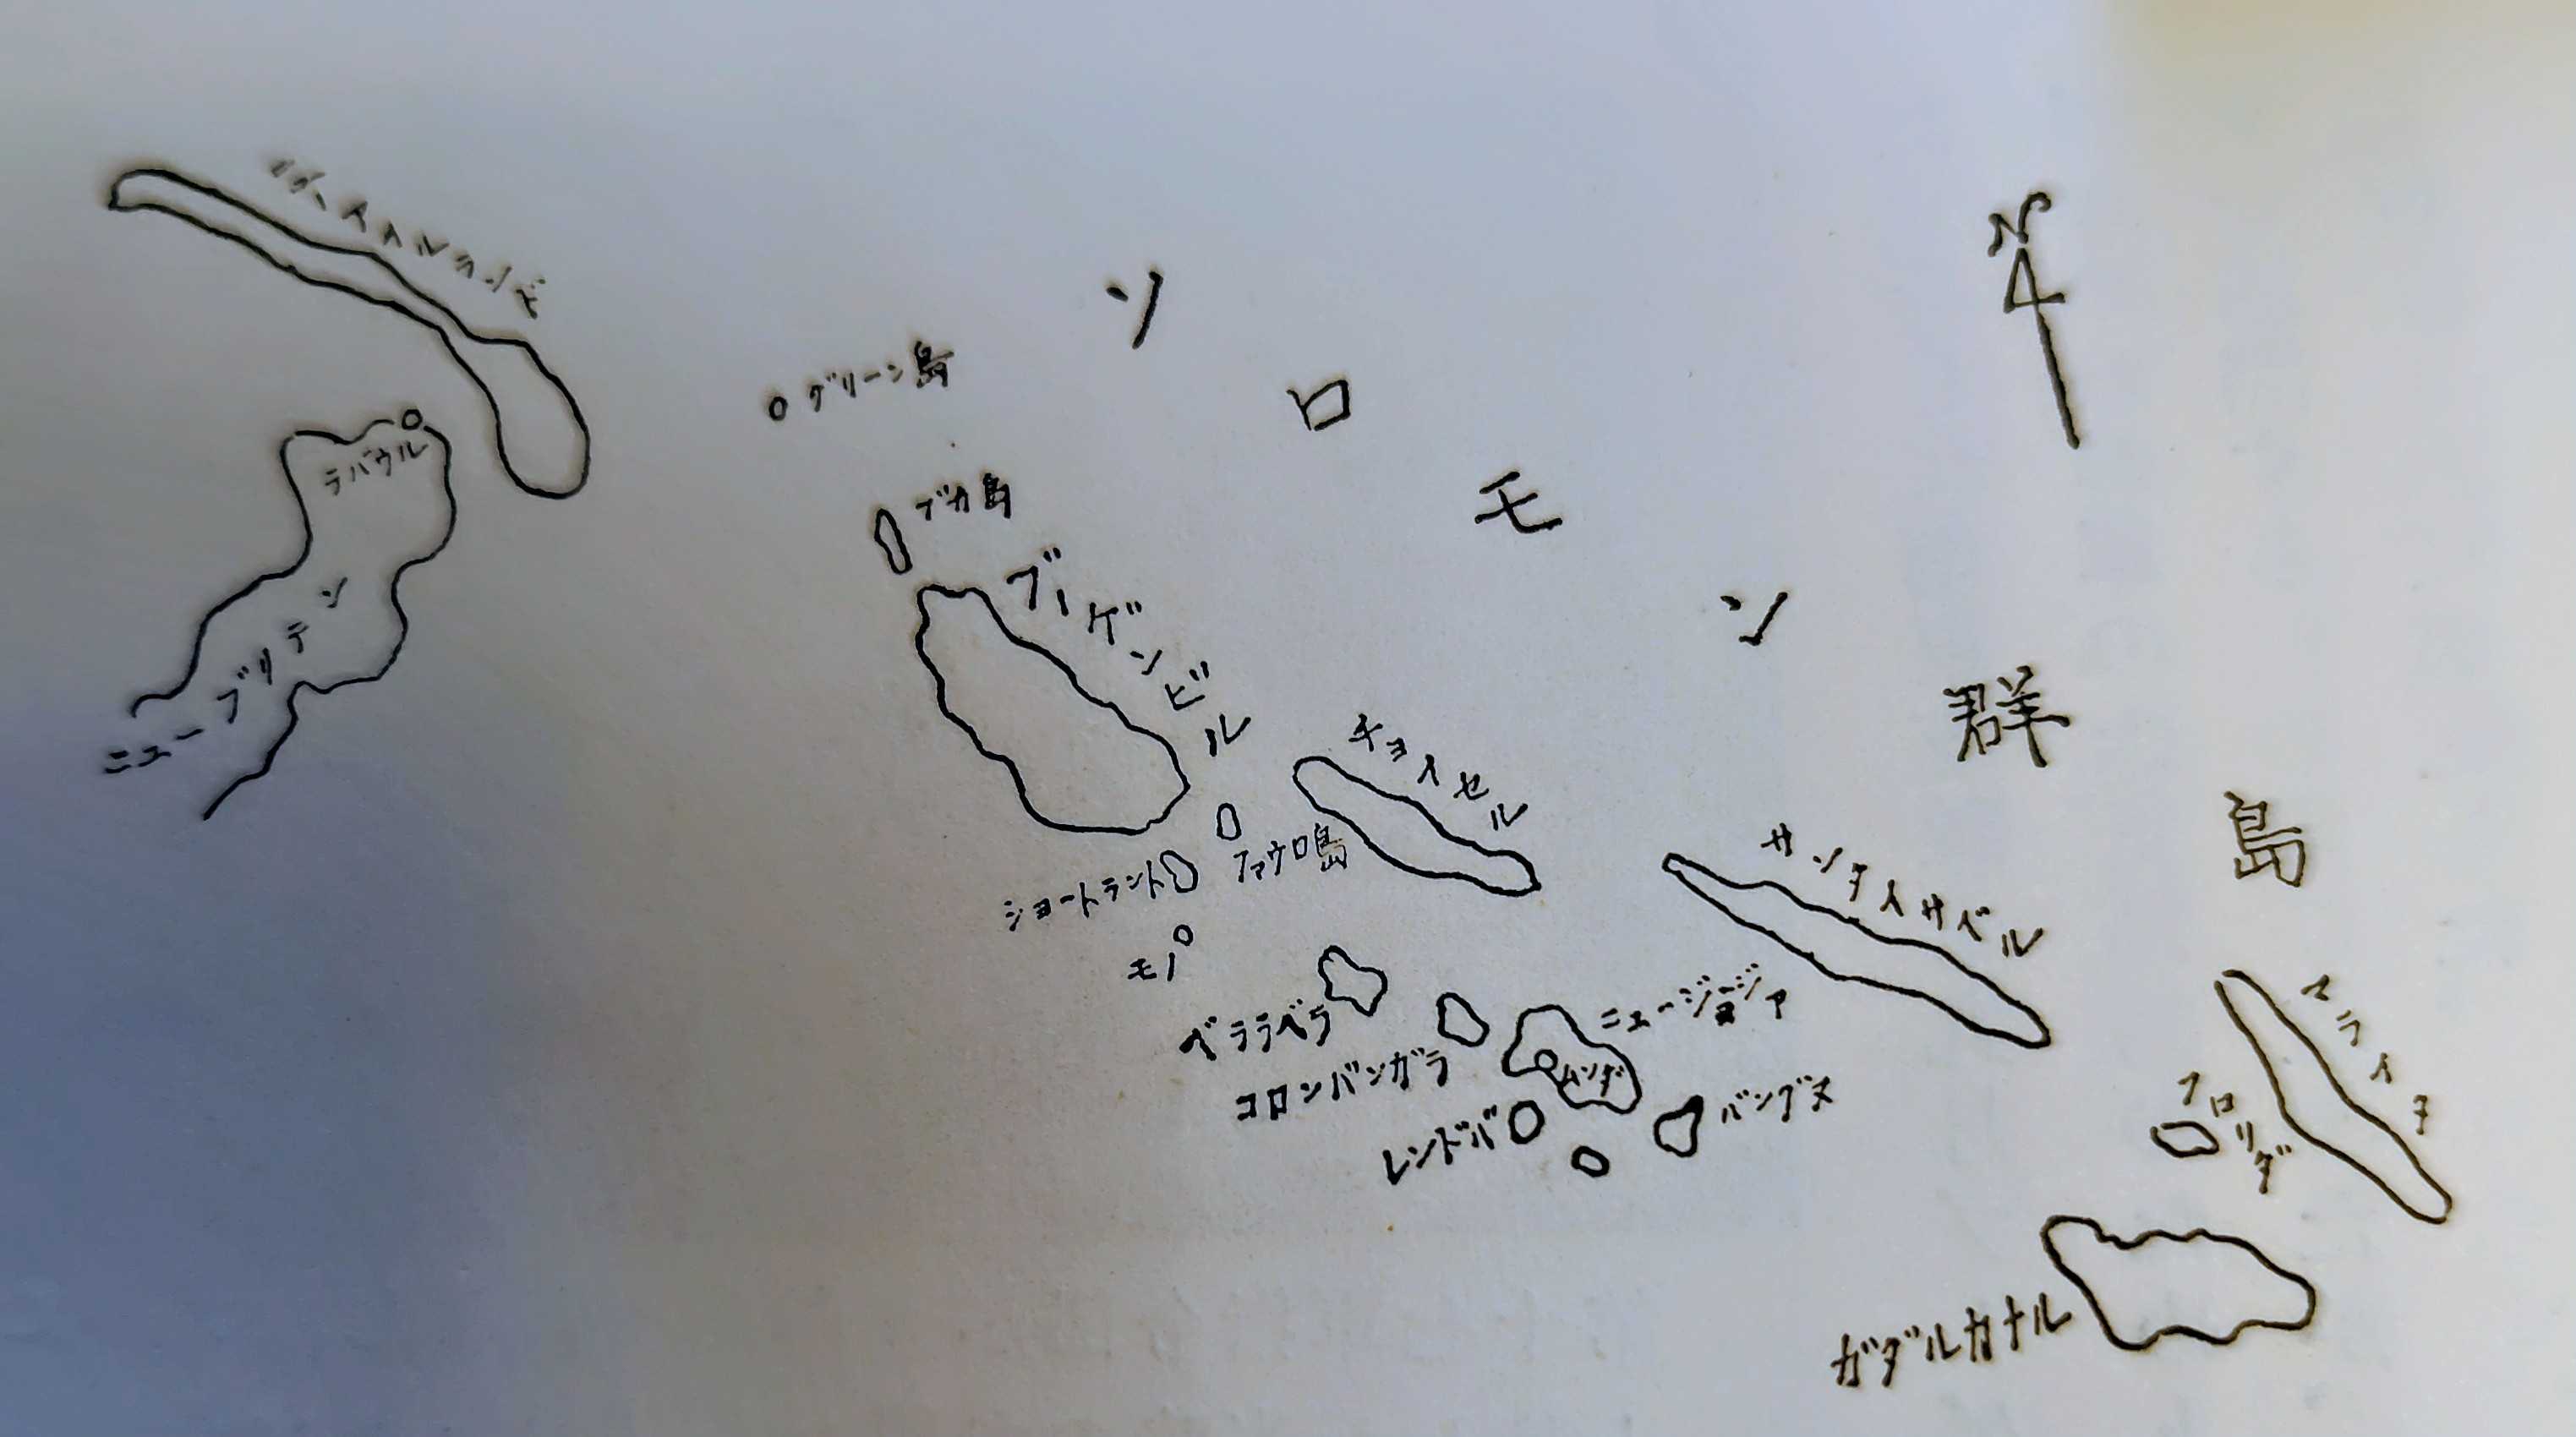 ソロモン群島
N
グリーン島
ラバウル
ニューブリテン
ブカ島
ブーゲンビル
チョイセル
ファウロ島
ショートランド
モノ
サンタイサベル
ベララベラ
コロンバンガラ
ニュージョージア
ムンダ
レンドバ
バングヌ
マライタ
フロリダ
ガダルカナル